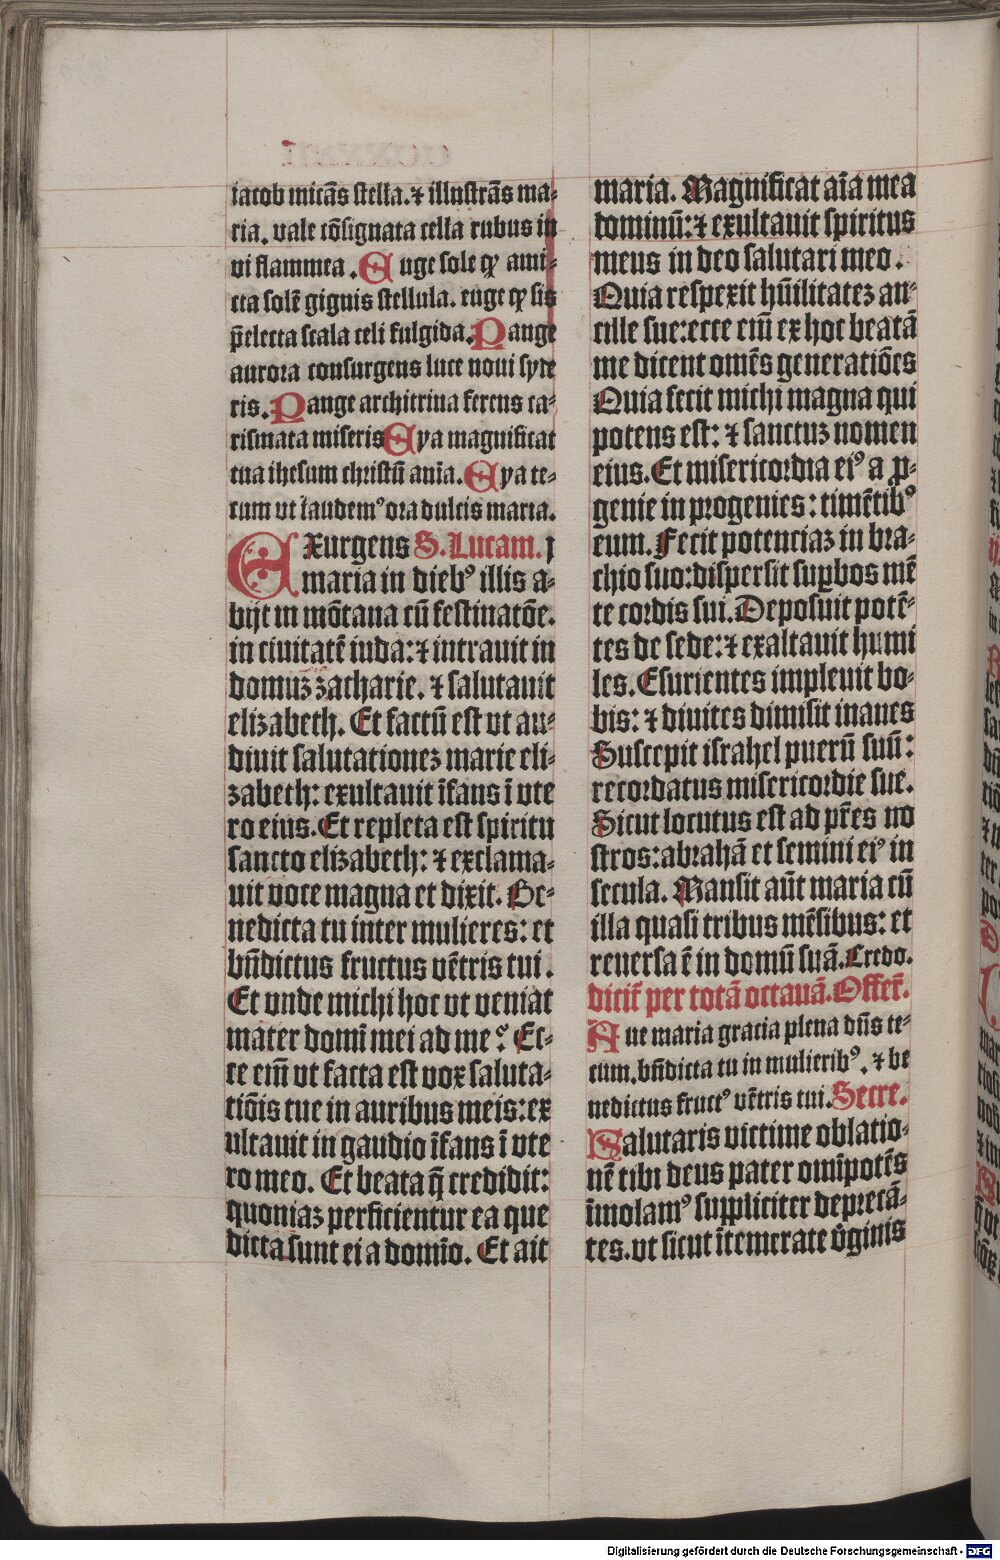 iacob micãs stella. ⁊ illustrãs ma⸗
ria. vale cõsignata cella rubus in
vi flammea. Euge sole qꝫ ami⸗
cta solē gignis stellula. euge qꝫ sis
p̄electa scala celi fulgida. Pange
aurora consurgens luce noui syde
ris. Pange architrina ferens ca⸗
rismata miseris Eya magnificat
tua ihesum christū anīa. Eya te⸗
cum vt laudemꝰ ora dulcis maria.
EXurgens S. Lucam. j
maria in diebꝰ illis a⸗
bijt in mōtana cū festinatōe.
in ciuitatē iuda: ⁊ intrauit in
domuꝫ zacharie. ⁊ salutauit
elizabeth. Et factū est vt au⸗
diuit salutationeꝫ marie eli⸗
zabeth: exultauit īfans ī vte
ro eius. Et repleta est spiritu
sancto elizabeth: ⁊ exclama⸗
uit voce magna et dixit. Be⸗
nedicta tu inter mulieres: et
bn̄dictus fructus vētris tui.
Et vnde michi hoc vt veniat
mater domī mei ad me? Ec⸗
ce em̄ vt facta est vox saluta⸗
tiōis tue in auribus meis: ex
ultauit in gaudio īfans ī vte
ro meo. Et beata q̄ credidit:
quoniaꝫ perficientur ea que
dicta sunt ei a domīo. Et ait
maria. Magnificat aīa mea
dominū: ⁊ exultauit spiritus
meus in deo salutari meo.
Quia respexit hūilitateꝫ an⸗
cille sue: ecce em̄ ex hoc beatā
me dicent omēs generatiōes
Quia fecit michi magna qui
potens est: ⁊ sanctuꝫ nomen
eius. Et misericordia eiꝰ a ꝓ⸗
genie in progenies: timētibꝰ
eum. Fecit potenciaꝫ in bra⸗
chio suo: dispersit suꝑbos mē
te cordis sui. Deposuit potē⸗
tes de sede: ⁊ exaltauit humi
les. Esurientes impleuit bo⸗
nis: ⁊ diuites dimisit inanes
Suscepit israhel puerū suū:
recordatus misericordie sue.
Sicut locutus est ad pr̄es no
stros: abrahā et semini eiꝰ in
secula. Mansit aūt maria cū
illa quasi tribus mēsibus: et
reuersa ē in domū suā. Credo.
dicit᷑ per totā octauā. Offer̄.
Aue maria gracia plena dn̄s te⸗
cum. bn̄dicta tu in mulieribꝰ. ⁊ be
nedictus fructꝰ vētris tui. Secre.
Salutaris victime oblatio⸗
nē tibi deus pater omīpotēs
īmolamꝰ suppliciter deprecā⸗
tes. vt sicut ītemerate v̄ginis
Digitalisierung gefördert durch die Deutsche Forschungsgemeinschaft - DFG